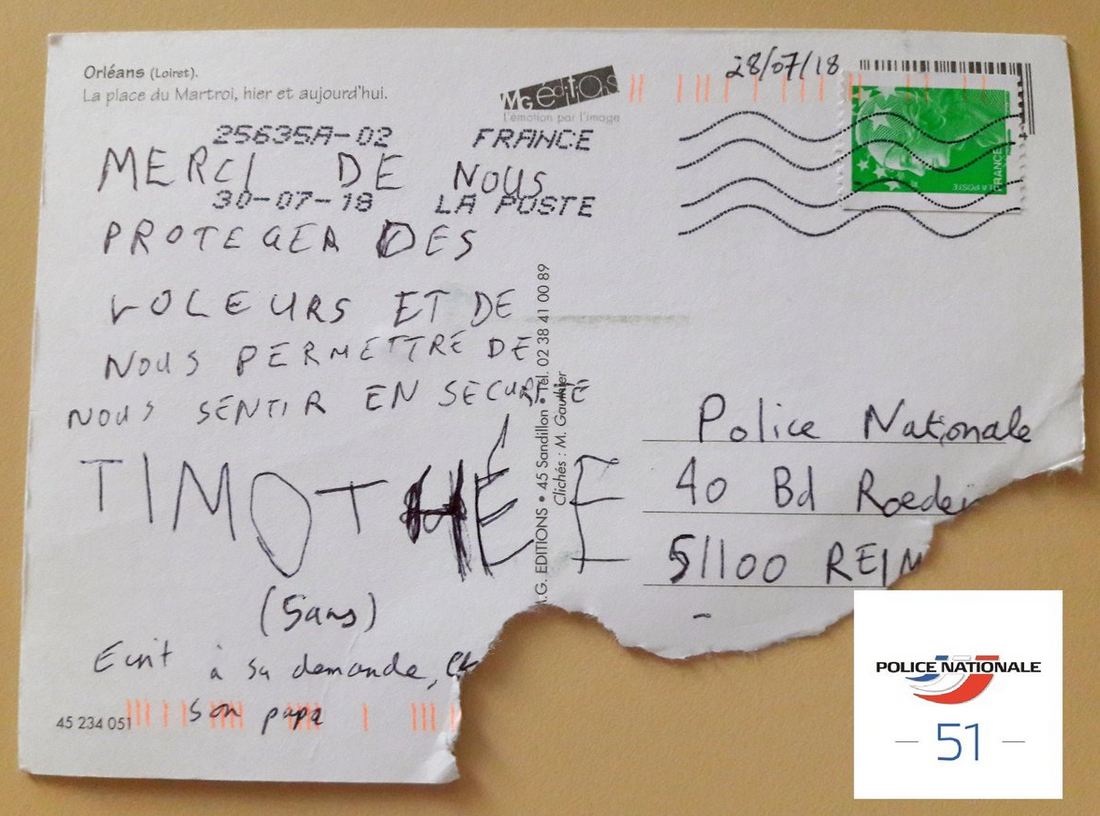 Orléans (Loiret).
La place du Martroi, hier et aujourd'hui.
MG éditions
l'émotion par l'image
28/07/18
25635A-02 FRANCE
30-07-18 LA POSTE
MERCI DE NOUS
PROTEGER DES
VOLEURS ET DE
NOUS PERMETTRE DE
NOUS SENTIR EN SECURITE
TIMOTHÉE
(5ans)
Ecrit à sa demande,
son papa
45 234 051
.G. EDITIONS • 45 Sandillon • Tél. 02 38 41 00 89
Clichés : M. Gauthier
LA POSTE
FRANCE
Police Nationale
40 Bd Roede
51100 REIM
POLICE NATIONALE
– 51 –